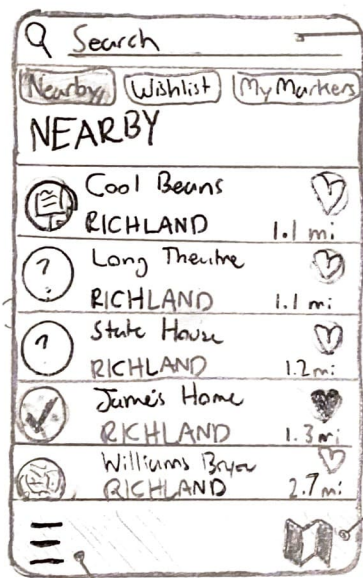 Search
Nearby Wishlist My Markers
NEARBY
Cool Beans
RICHLAND 1.1 mi
?
Long Theutre
RICHLAND 1.1 mi
?
State House
RICHLAND 1.2 mi
James Home
RICHLAND 1.3 mi
Williams
RICHLAND 2.7 mi